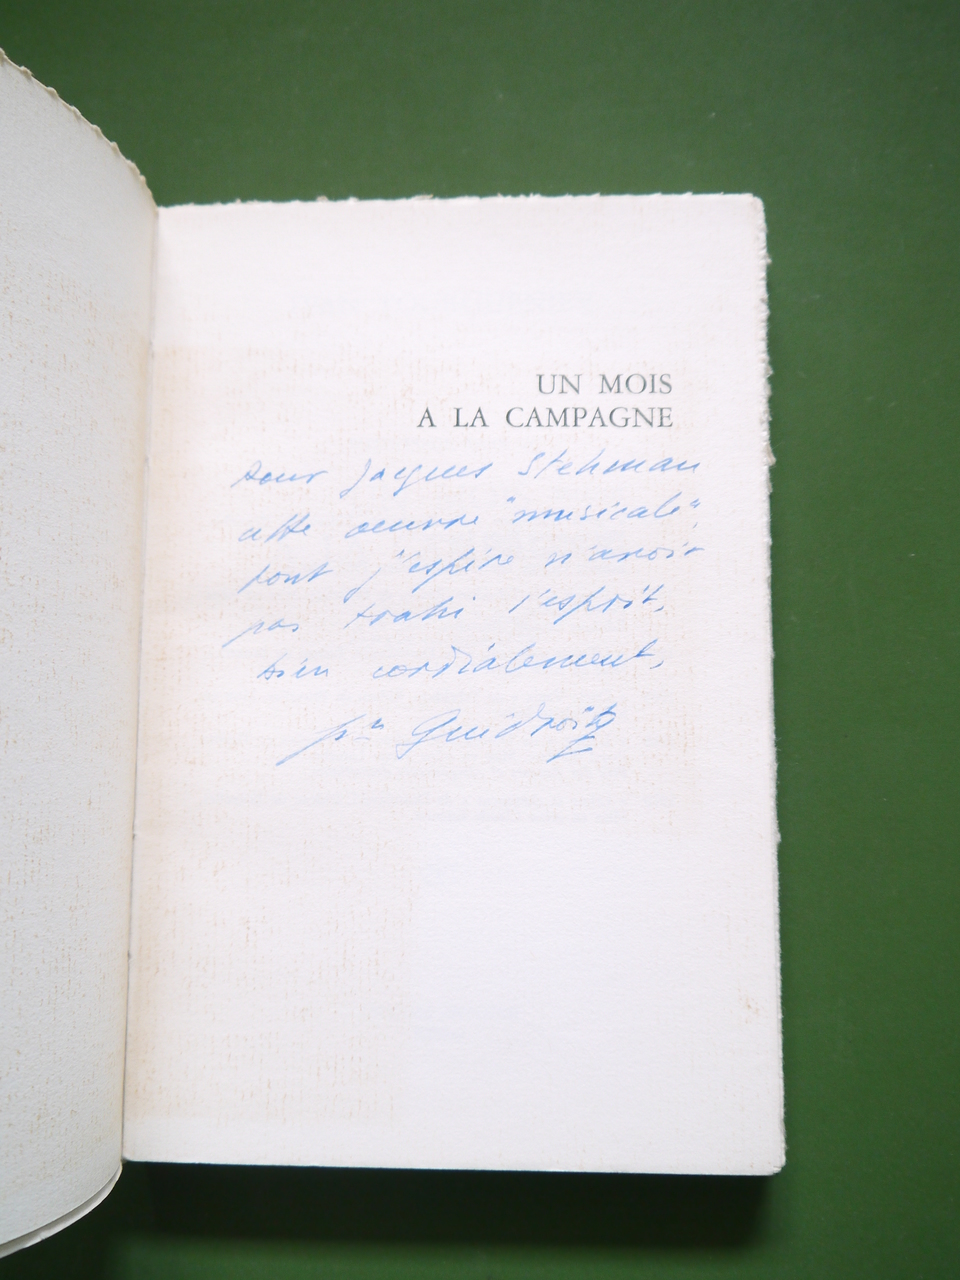 UN MOIS
A LA CAMPAGNE
Pour Jacques Stehman
cette oeuvre "musicale",
dont j'espère n'avoir
pas trahi l'esprit,
bien cordialement,
Guidroitz